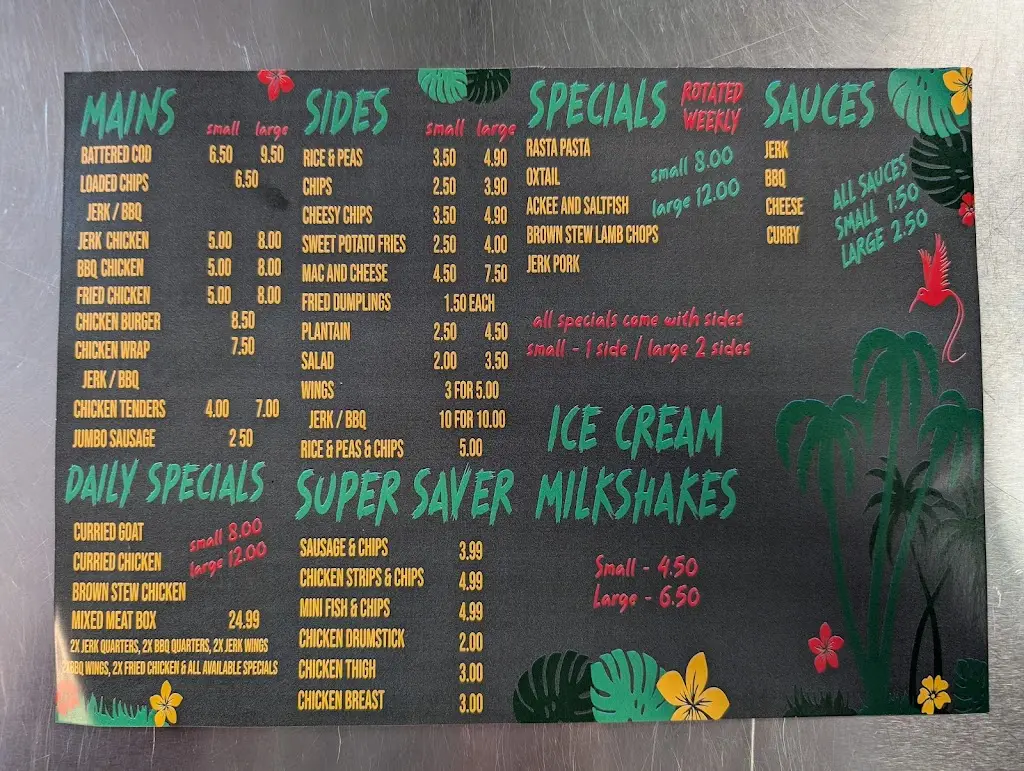 MAINS
small large
BATTERED COD 6.50 9.50
LOADED CHIPS 6.50
JERK / BBQ
JERK CHICKEN 5.00 8.00
BBQ CHICKEN 5.00 8.00
FRIED CHICKEN 5.00 8.00
CHICKEN BURGER 8.50
CHICKEN WRAP 7.50
JERK / BBQ
CHICKEN TENDERS 4.00 7.00
JUMBO SAUSAGE 2 50
DAILY SPECIALS
CURRIED GOAT
small 8.00
CURRIED CHICKEN
large 12.00
BROWN STEW CHICKEN
MIXED MEAT BOX 24.99
2X JERK QUARTERS, 2X BBQ QUARTERS, 2X JERK WINGS
2XBBQ WINGS, 2X FRIED CHICKEN & ALL AVAILABLE SPECIALS
SIDES
small large
RICE & PEAS 3.50 4.90
CHIPS 2.50 3.90
CHEESY CHIPS 3.50 4.90
SWEET POTATO FRIES 2.50 4.00
MAC AND CHEESE 4.50 7.50
FRIED DUMPLINGS 1.50 EACH
PLANTAIN 2.50 4.50
SALAD 2.00 3.50
WINGS 3 FOR 5.00
JERK / BBQ 10 FOR 10.00
RICE & PEAS & CHIPS 5.00
SUPER SAVER
SAUSAGE & CHIPS 3.99
CHICKEN STRIPS & CHIPS 4.99
MINI FISH & CHIPS 4.99
CHICKEN DRUMSTICK 2.00
CHICKEN THIGH 3.00
CHICKEN BREAST 3.00
SPECIALS
ROTATED
WEEKLY
RASTA PASTA
OXTAIL
small 8.00
ACKEE AND SALTFISH
large 12.00
BROWN STEW LAMB CHOPS
JERK PORK
all specials come with sides
small - 1 side / large 2 sides
ICE CREAM
MILKSHAKES
Small - 4.50
Large - 6.50
SAUCES
JERK
BBQ
CHEESE
CURRY
ALL SAUCES
SMALL 1.50
LARGE 2.50